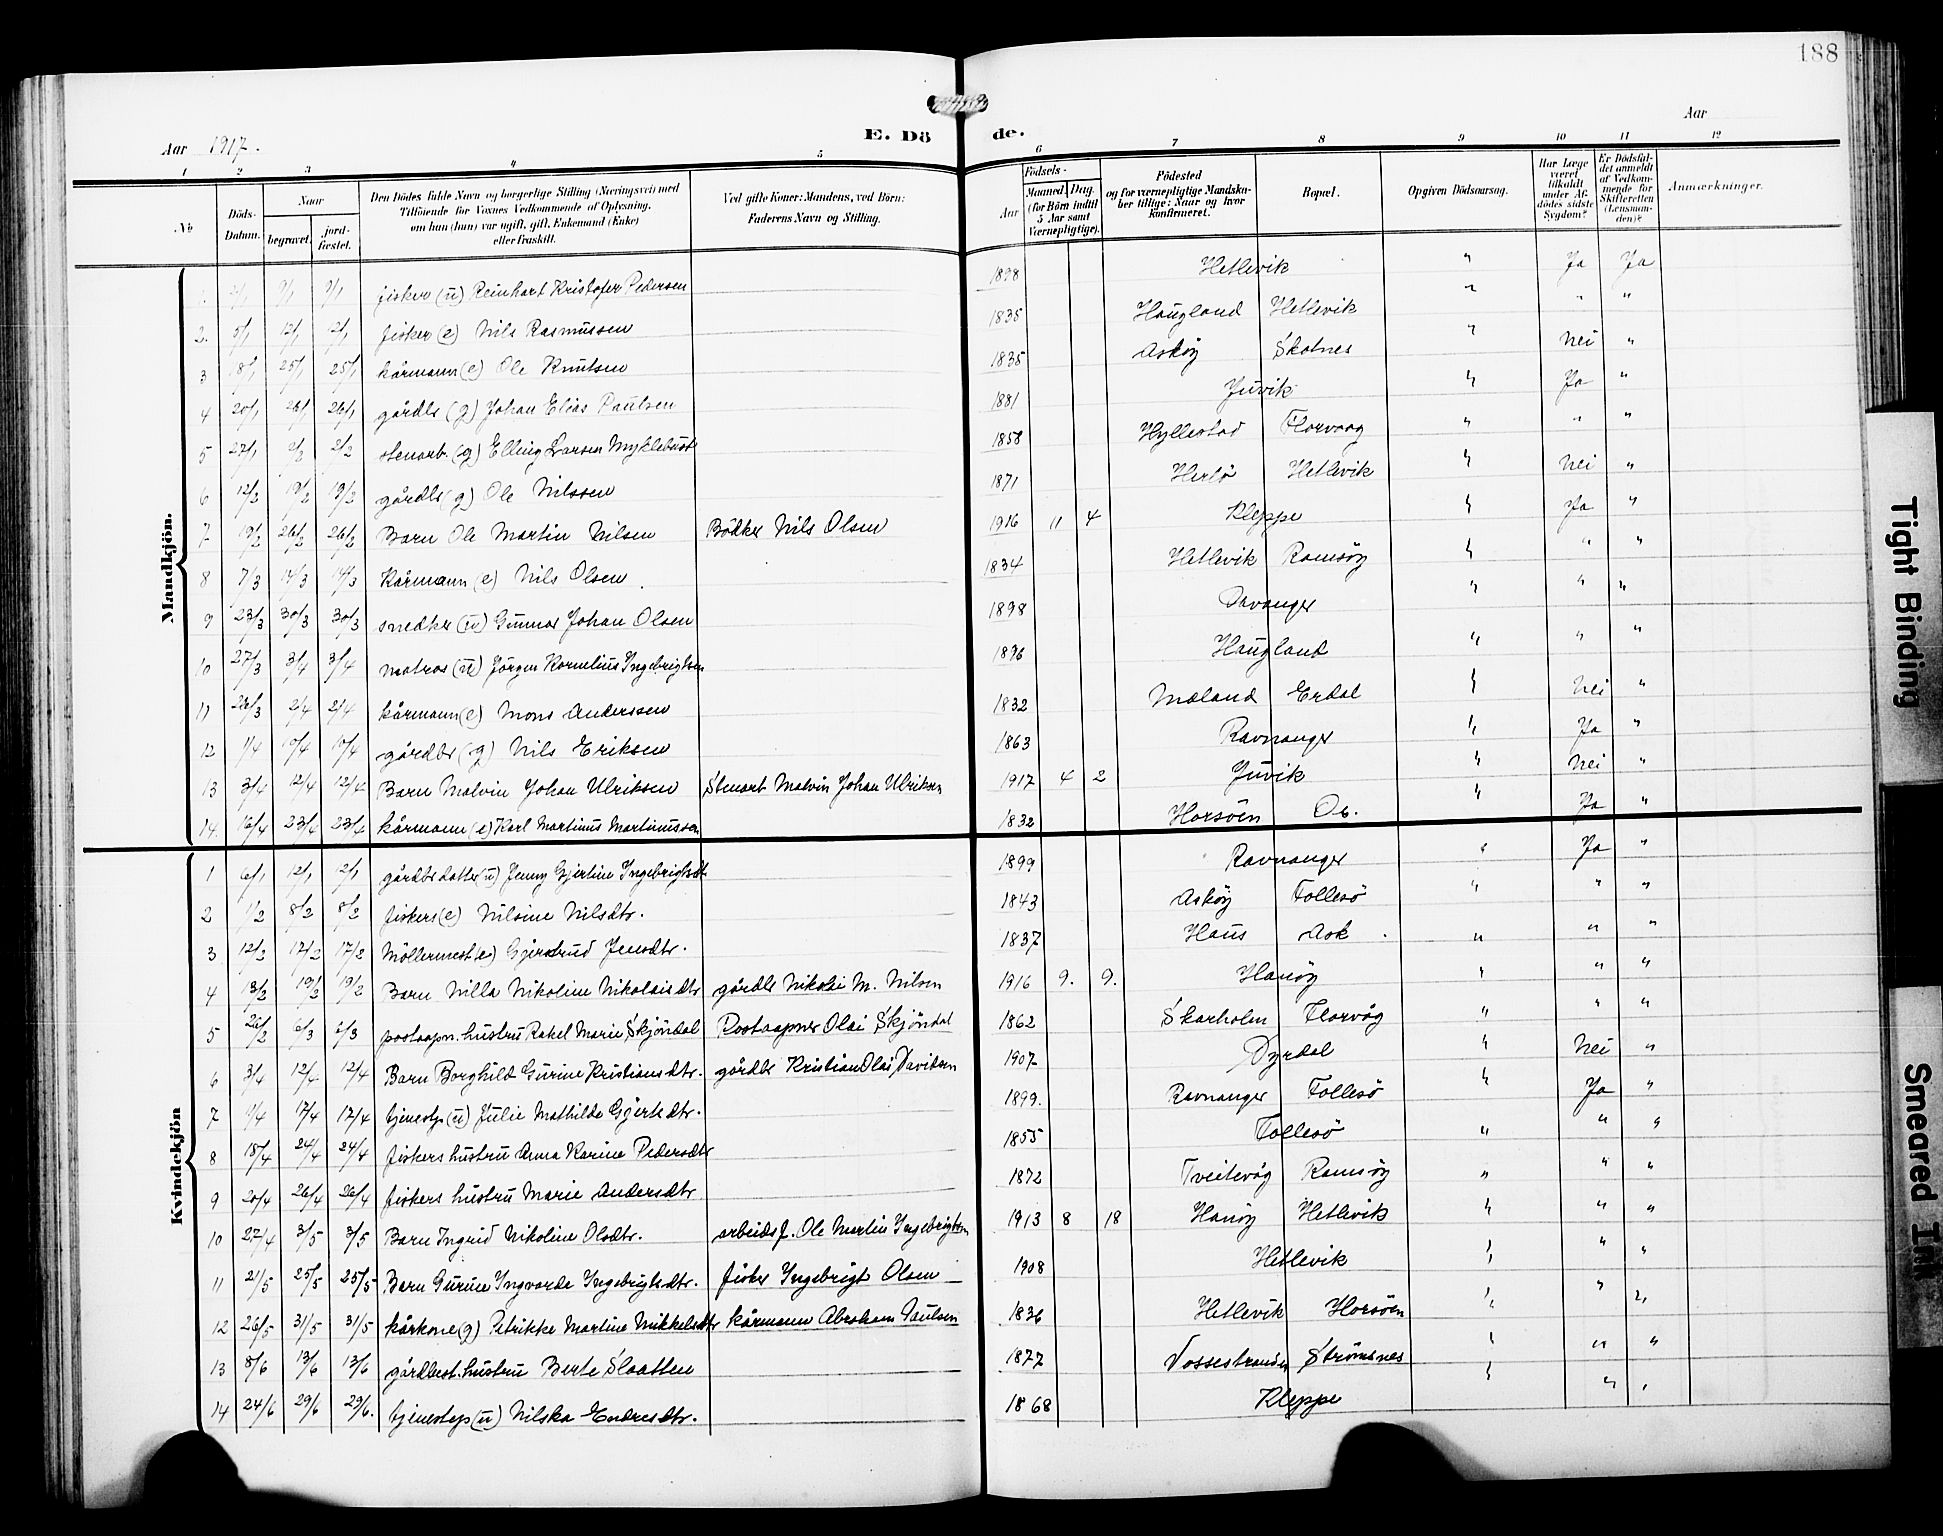 188
Aar 1917.
E. Dö de.
Aar
1 2 3 4 5 6 7 8 9 10 11 12
№
Döds-Datum.
Naar
begravet.
jord-fæstet.
Den Dödes fulde Navn og borgerlige Stilling (Næringsvei) med Tilföiende for Voxnes Vedkommende af Oplysning, om han (hun) var ugift, gift, Enkemand (Enke) eller fraskilt.
Ved gifte Koner: Mandens, ved Börn: Faderens Navn og Stilling.
Födsels-
Aar
Maaned. Dag. (for Börn indtil 5 Aar samt Værnepligtige).
Födested og for værnepligtige Mandskaber tillige: Naar og hvor konfirmeret.
Bopæl.
Opgiven Dödsaarsag.
Har Læge været tilkaldt under Afdödes sidste Sygdom?
Er Dödsfaldet anmeldt af Vedkommende for Skifteretten (Lensmanden)?
Anmærkninger.
Mandkjön.
1. 9/1 9/1 fisker (u) Reinhart Kristofer Pedersen 1898 Hetlevik " Ja Ja
2. 5/1 12/1 12/1 fisker (e) Nils Rasmussen 1835 Haugland Hetlevik " " "
3 18/1 25/1 25/1 kårmann (e) Ole Knutsen 1835 Askøy Skatnes " Nei "
4 20/1 26/1 26/1 gårdbr (g) Johan Elias Paulsen 1881 Juvik " Ja "
5 27/1 2/2 2/2 stenarb. (g) Elling Larsen Myklebust 1858 Hyllestad Florvaag " " "
6 12/2 19/2 19/2 gårdbr (g) Ole Nilssen 1871 Herlö Hetlevik " Nei "
7 19/2 26/2 26/2 Barn Ole Martin Nilsen Bödker Nils Olsen 1916 11 4 Kleppe " Ja "
8 7/3 14/3 14/3 Kårmann (e) Nils Olsen 1834 Hetlevik Ramsøy " " "
9 23/3 30/3 30/3 snedker (u) Gunnar Johan Olsen 1898 Davanger " " "
10 27/3 3/4 3/4 matros (u) Jörgen Kornelius Ingebrigtsen 1896 Haugland " " "
11 26/3 2/4 2/4 kårmann (e) Mons Anderssen 1832 Mæland Erdal " Nei "
12 1/4 10/4 10/4 gårdbr (g) Nils Eriksen 1863 Ravnanger " Ja "
13 3/4 12/4 12/4 Barn Malvin Johan Ulriksen Stenarb Malvin Johan Ulriksen 1917 4 2 Juvik " Nei "
14. 16/4 23/4 23/4 kårmann (e) Karl Martinus Martinussen 1832 Horsöen Do. " Ja "
Kvindekjön
1 6/1 12/1 12/1 gårdbr datter (u) Jenny Gjertine Ingebrigtsdtr 1899 Ravnanger " Ja "
2 1/2 8/2 8/2 fiskers (e) Nilsine Nilsdtr. 1843 Askøy Follesö " " "
3 12/2 17/2 17/2 Möllermest (e) Gjertrud Jensdtr. 1837 Haus Ask " " "
4 13/2 19/2 19/2 Barn Nilla Nikoline Nikolaisdtr gårdbr Nikolai M. Nilsen 1916 9. 9. Hanøy " " "
5 26/2 6/3 6/3 postaapn. hustru Rakel Marie Skjöndal Postaapner Olai Skjöndal 1862 Skarholm Florvåg " " "
6 3/4 12/4 12/4 Barn Borghild Gurine Kristiansdtr. gårdbr Kristian Olai Davidsen 1907 Dyrdal " Nei "
7 9/4 17/4 17/4 tjenestp (u) Julie Mathilde Gjertsdtr. 1899. Ravnanger Follesö " Ja "
8 18/4 24/4 24/4 fiskers hustru Anna Karine Pedersdtr 1855 Follesö " " "
9 20/4 26/4 26/4 fiskers hustru Marie Andersdtr 1872 Tveitevåg Ramsøy " " "
10 27/4 3/5 3/5 Barn Ingrid Nikoline Olsdtr. arbeidsf. Ole Martin Ingebrigtsen 1913 8 18 Hanøy Hetlevik " " "
11 21/5 25/5 25/5 Barn Gurine Ingvarda Ingebrigtsdtr. fisker Ingebrigt Olsen 1908 Hetlevik " " "
12 26/5 31/5 31/5 kårkone (g) Petrikke Martine Mikkelsdtr kårmann Abraham Paulsen 1836 Hetlevik Horsöen " " "
13 8/6 13/6 13/6 gårdbest. hustru Berte Slaatten 1877 Vossestranden Strömsnes " " "
14 24/6 29/6 29/6. tjenestep (u) Nilska Endresdtr. 1868 Kleppe " " "
Tight Binding
Smeared Ink